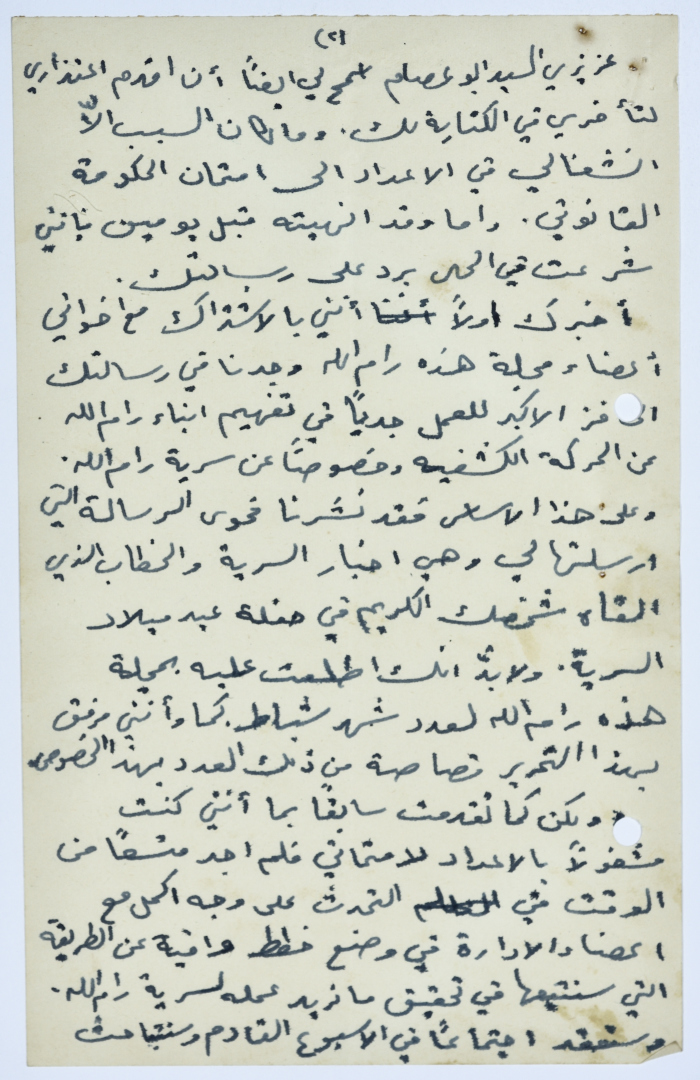 (٢)
عزيزي السيد ابو عصام اسمح لي ايضًا أن اقدم اعتذاري
لتأخري في الكتابة لك. وما كان السبب الاّ
انشغالي في الاعداد الى امتحان الحكومة
القانوني. واما وقد انهيته قبل يومين فانني
شرعت في الحال برد على رسالتك.
أخبرك اولاً أنني بالاشتراك مع اخواني
أعضاء مجلة هذه رام الله وجدنا في رسالتك
الحافز الاكبر للعمل جديًا في تفهيم ابناء رام الله
عن الحركة الكشفيه وخصوصًا عن سرية رام الله.
وعلى هذا الاساس فقد نشرنا فحوى الرسالة التي
ارسلتها لي وهي اخبار السرية والخطاب الذي
القاه شخصك الكريم في حفلة عيد ميلاد
السريّة. ولابدّ انك اطلعت عليه بمجلة
هذه رام الله لعدد شهر شباط. كما وأنني مرفق
بهذا التحرير قصاصة من ذلك العدد بهذا الخصوص.
ولكن كما تقدمت سابقًا بما أنني كنت
مشغولاً بالاعداد لامتحاني فلم اجد متسعًا من
الوقت في التحدث على وجه اكمل مع
اعضاء الادارة في وضع خطط وافية عن الطريقة
التي سنتبعها في تحقيق ما نريد عمله لسرية رام الله.
وسنعقد اجتماعًا في الاسبوع القادم وسنتباحث